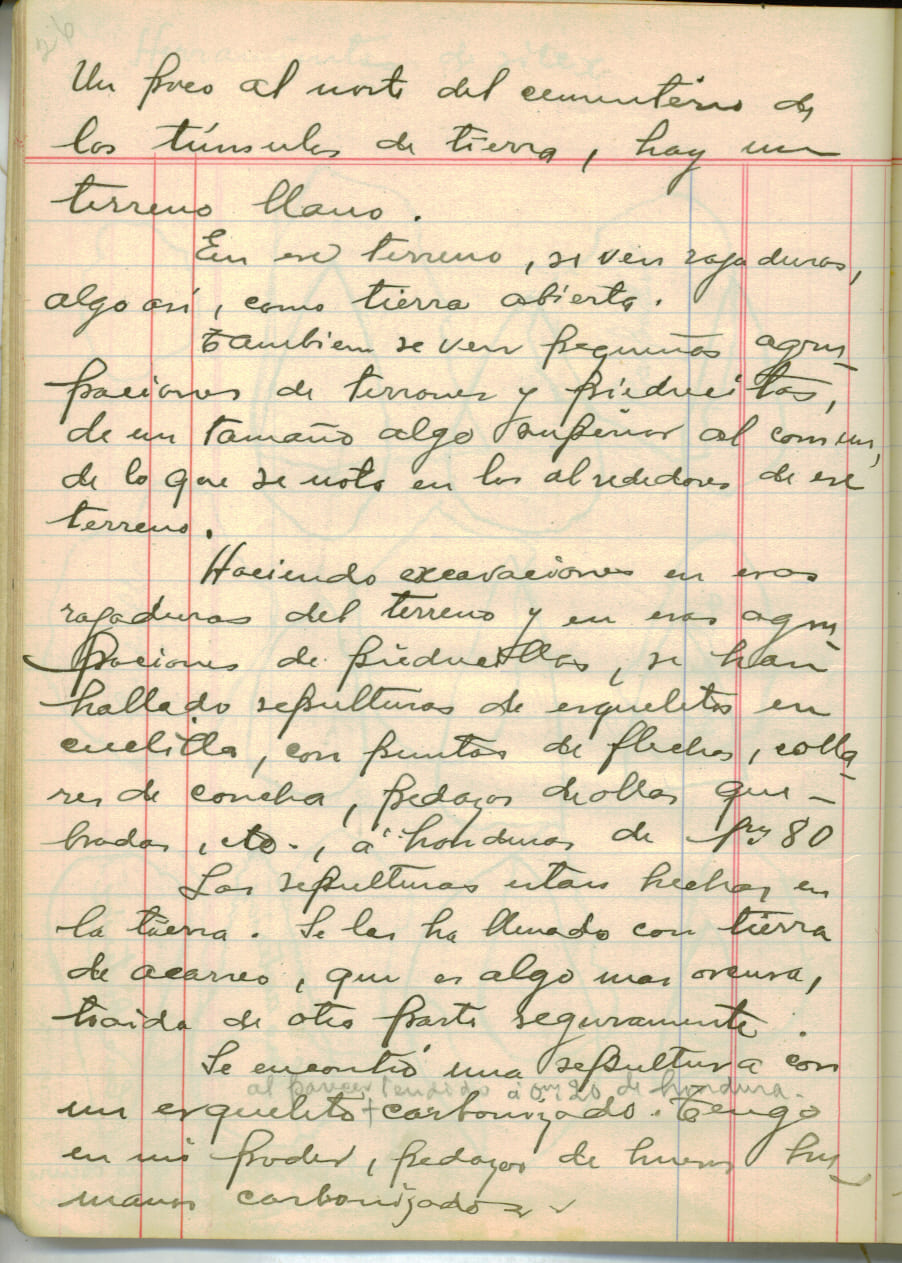 26
Un poco al norte del cementerio de
los túmulos de tierra, hay un
terreno llano.
En ese terreno, se ven rajaduras,
algo asi, como tierra abierta.
Tambien se ven pequeños agru-
paciones de terrones y piedrecitas,
de un tamaño algo superior al comun,
de lo que se nota en los alrededores de ese
terreno.
Haciendo excavaciones en esas
rajaduras del terreno y en esas agru-
paciones de piedrecillas, se han
hallado sepulturas de esqueletos en
cuclilla, con puntas de flechas, colla-
res de concha, pedazos de ollas que-
bradas, etc., á honduras de 80
Las sepulturas estan hechas en
la tierra. Se las ha llenado con tierra
de acarreo, que es algo mas oscura,
traida de otra parte seguramente.
Se encontró una sepultura con
al parecer tendido á 0m20 de hondura.
un esqueleto + carbonizado. Tengo
en mi poder, pedazos de huesos hu-
manos carbonizados